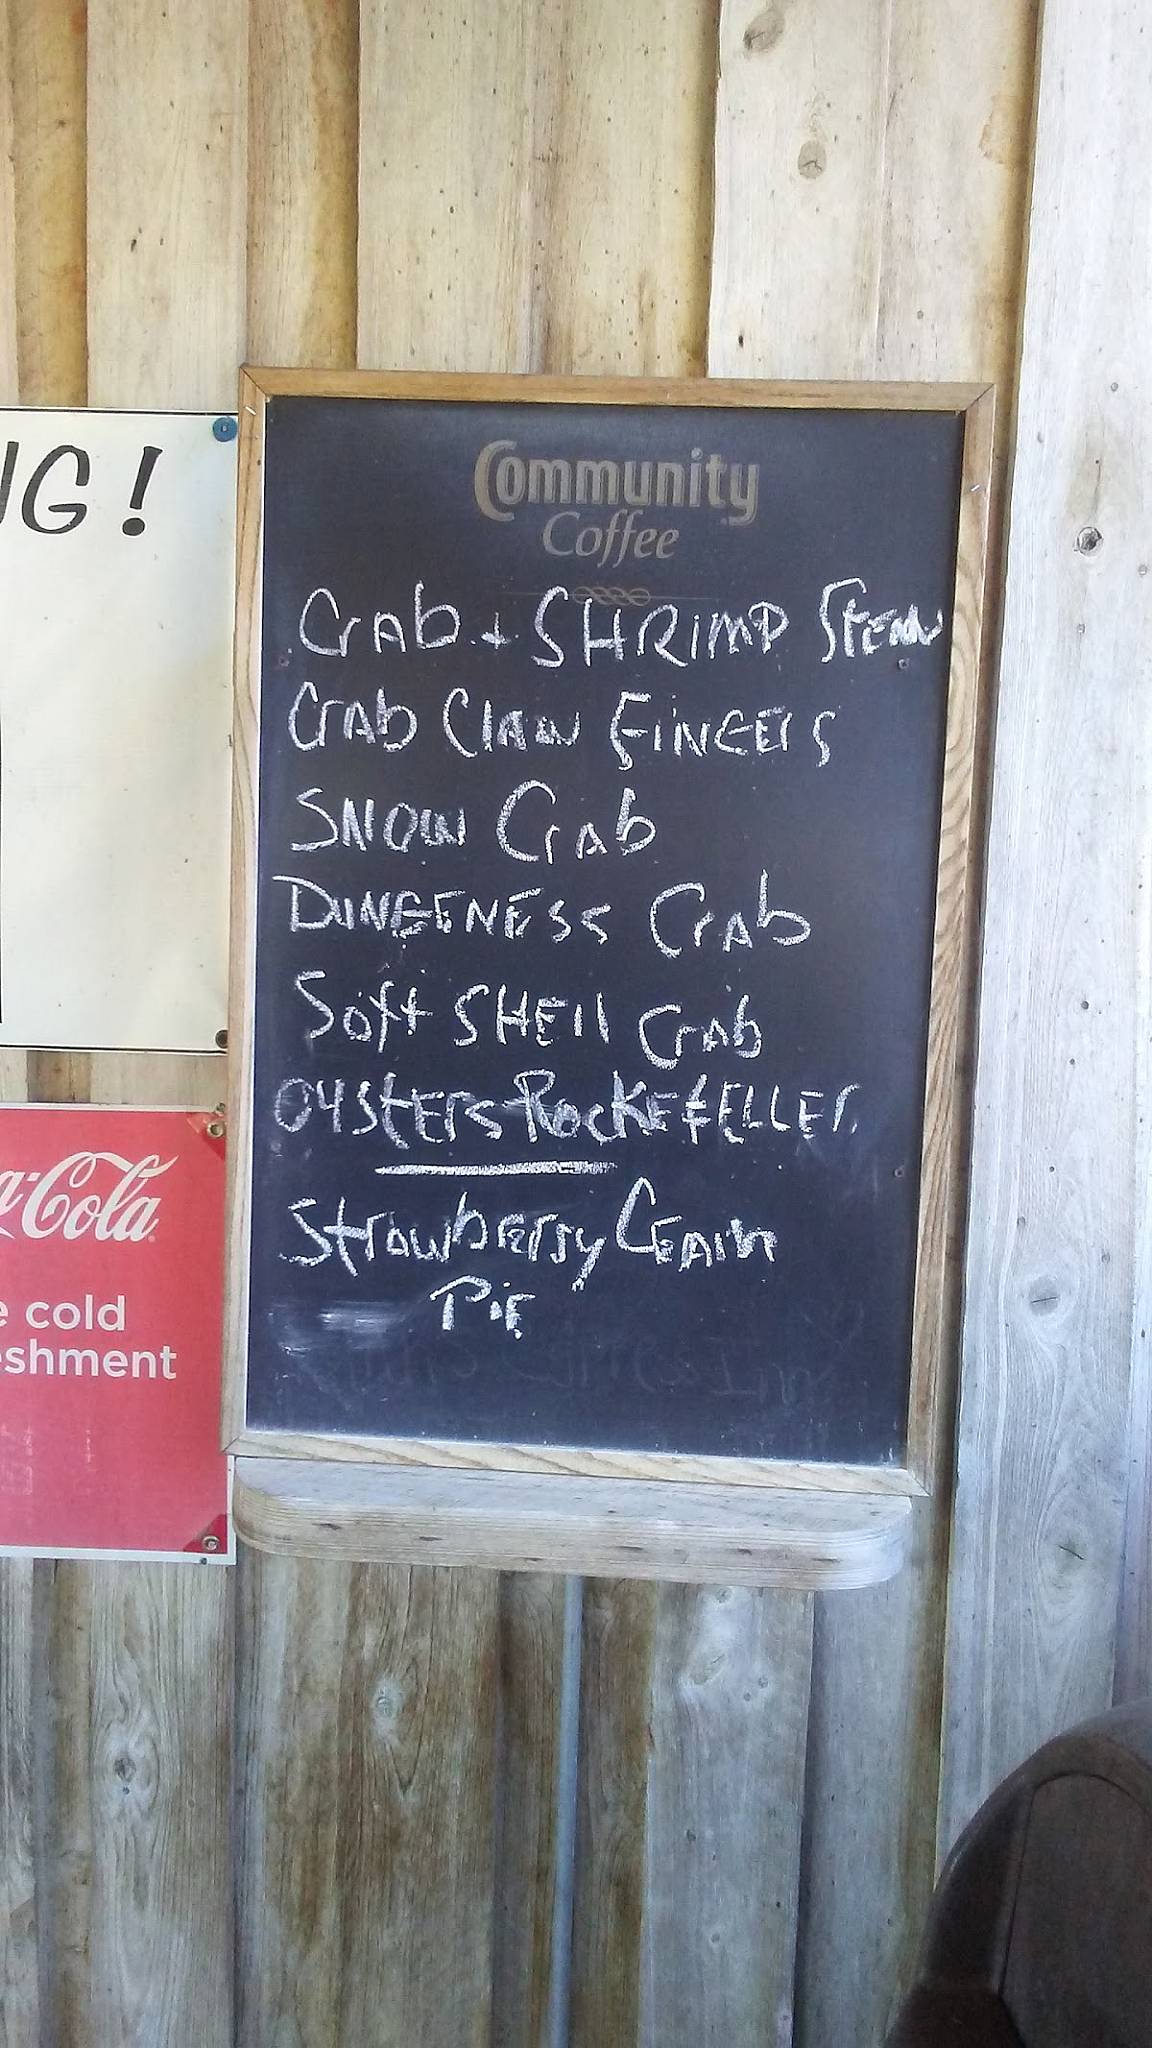 NG!
Community
Coffee
Crab + SHRIMP Stew
Crab Claw FINGERS
SNOW Crab
DUNGENESS Crab
Soft SHEll Crab
OYSTERS ROCKEfELLER
Strawberry CREAM
PIE
a-Cola
e cold
eshment